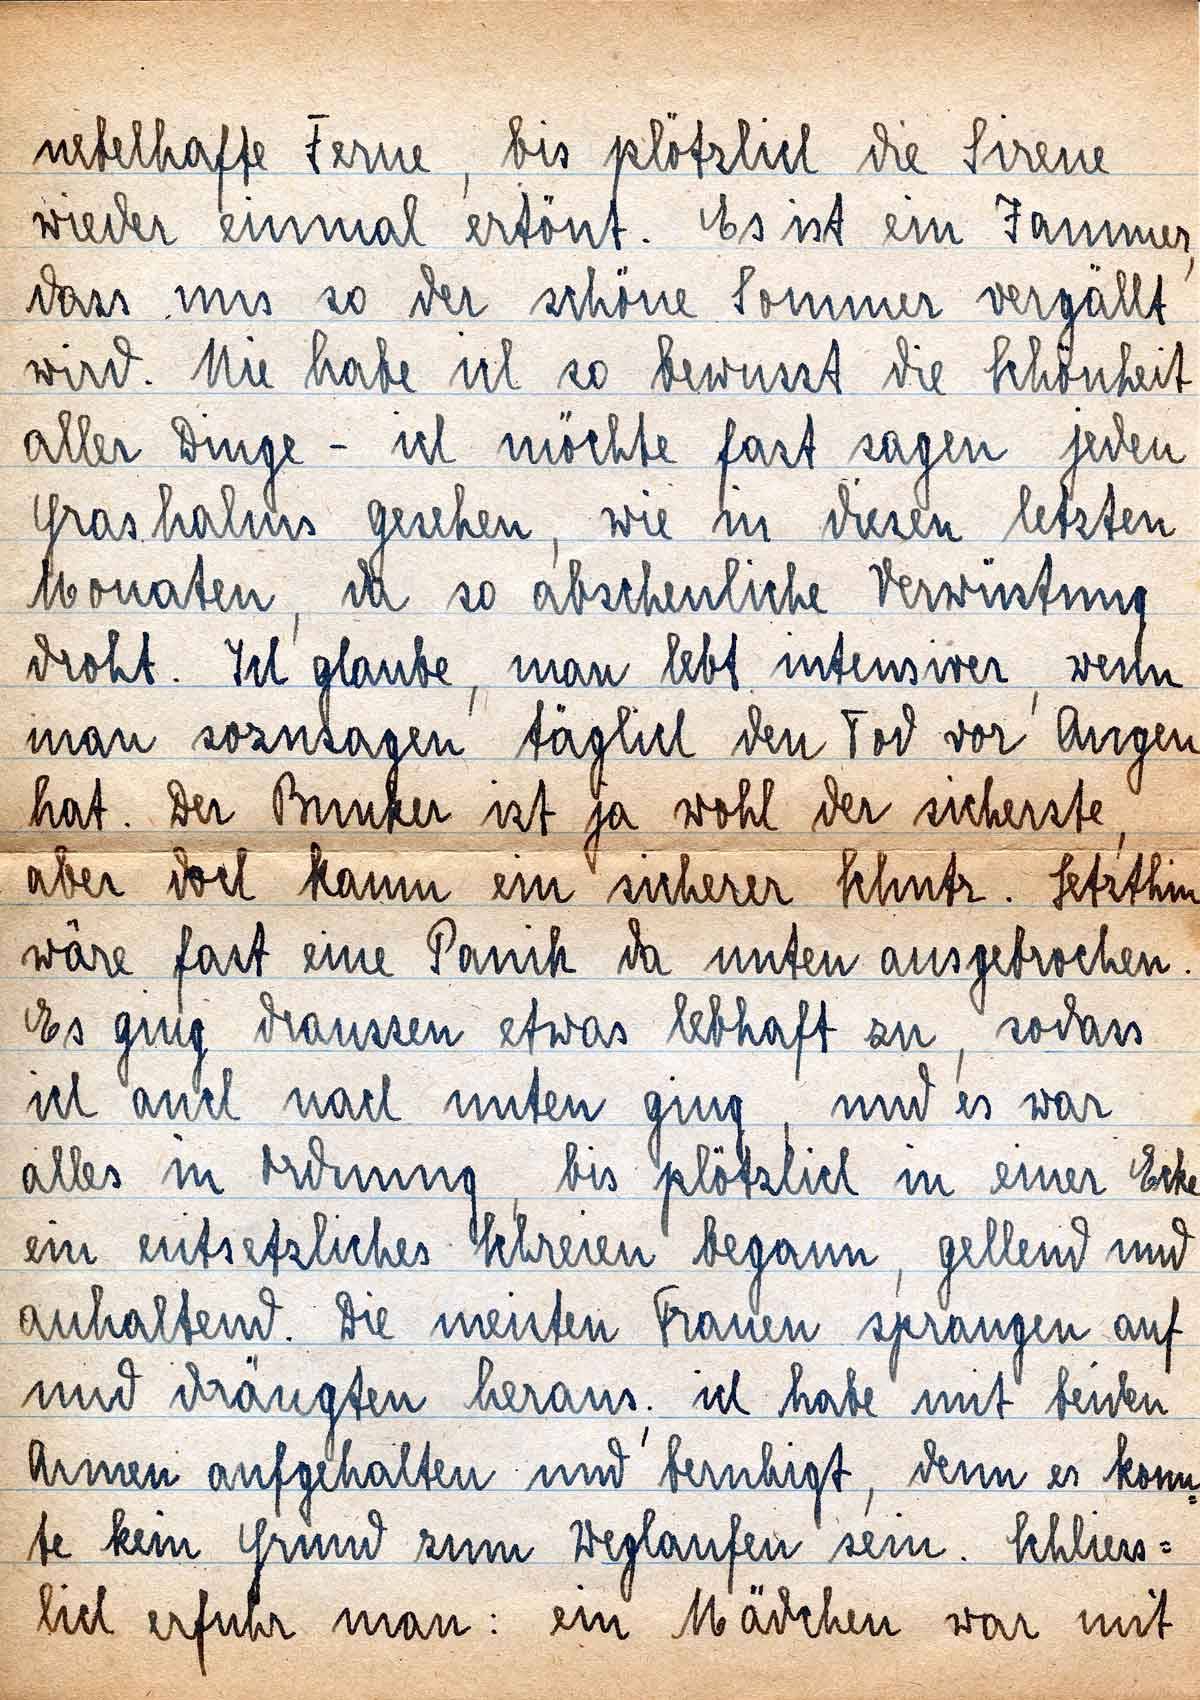 nebelhafte Ferne, bis plötzlich die Sirene
wieder einmal ertönt. Es ist ein Jammer,
dass uns so der schöne Sommer vergällt
wird. Nie habe ich so bewusst die Schönheit
aller Dinge - ich möchte fast sagen jeden
Grashalms gesehen, wie in diesen letzten
Monaten, da so abscheuliche Verwüstung
droht. Ich glaube, man lebt intensiver, wenn
man sozusagen täglich den Tod vor Augen
hat. Der Bunker ist ja wohl der sicherste,
aber doch kaum ein sicherer Schutz. Letzthin
wäre fast eine Panik da unten ausgebrochen.
Es ging draussen etwas lebhaft zu, sodass
ich auch nach unten ging, und es war
alles in Ordnung, bis plötzlich in einer Ecke
ein entsetzliches Schreien begann, gellend und
anhaltend. Die meisten Frauen sprangen auf
und drängten heraus; ich habe mit beiden
Armen aufgehalten und beruhigt, denn es konn=
te kein Grund zum Weglaufen sein. Schliess=
lich erfuhr man: ein Mädchen war mit